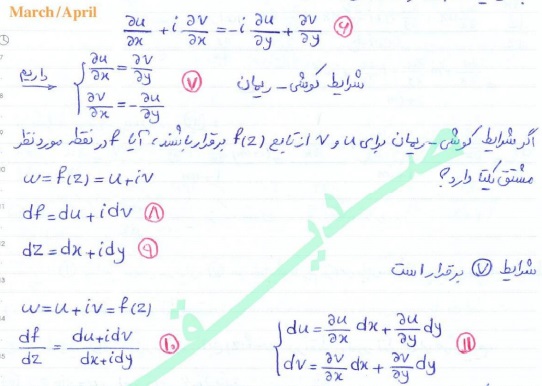 March/April
∂u/∂x + i ∂v/∂x = -i ∂u/∂y + ∂v/∂y ⑥
داریم → { ∂u/∂x = ∂v/∂y ⑦ شرایط کوشی - ریمان
∂v/∂x = -∂u/∂y
اگر شرایط کوشی - ریمان برای u و v از تابع f(z) برقرار باشند، آیا f در نقطه مورد نظر
مشتق یکتا دارد؟
w = f(z) = u + iv
df = du + idv ⑧
dz = dx + idy ⑨
شرایط ⑦ برقرار است
w = u + iv = f(z)
df/dz = (du + idv)/(dx + idy) ⑩
{ du = ∂u/∂x dx + ∂u/∂y dy ⑪
dv = ∂v/∂x dx + ∂v/∂y dy